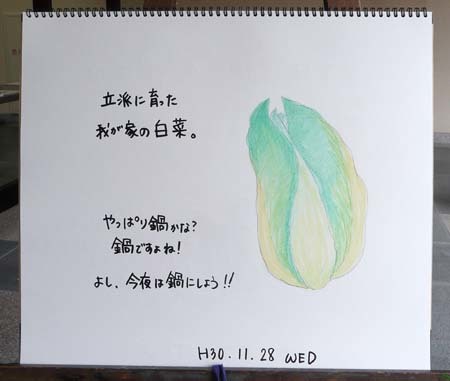 立派に育った
我が家の白菜。
やっぱり鍋かな?
鍋ですよね!
よし、今夜は鍋にしよう!!
H30.11.28 WED